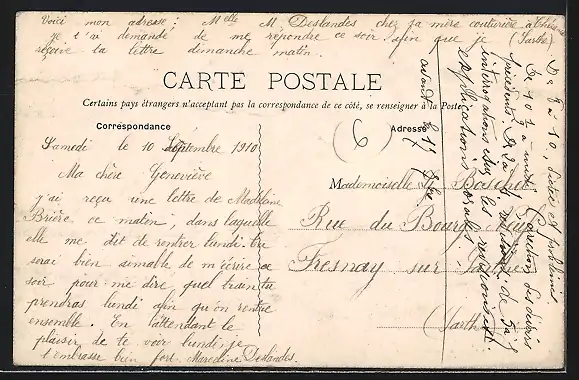 Voici mon adresse : Melle M. Deslandes chez sa mère couturière à
je t'ai demandé de me répondre ce soir afin que je (Sarthe)
reçoive ta lettre dimanche matin.
CARTE POSTALE
Certains pays étrangers n'acceptent pas la correspondance de ce côté, se renseigner à la Poste
Correspondance
Adresse
(6)
Samedi le 10 Septembre 1910
Ma chère Geneviève
j'ai reçu une lettre de Madeleine
Brière ce matin, dans laquelle
elle me dit de rentrer lundi. tu
serai bien aimable de m'écrire ce
soir pour me dire quel train tu
prendras lundi afin qu'on rentre
ensemble. En t'attendant le
plaisir de te voir lundi je
t'embrasse bien fort Marceline Deslandes.
Mademoiselle
Rue du Bourg Neuf
Fresnay sur Sarthe
(Sarthe)
avant le 17
explications orales
interrogations sur les
De 8 à 10, Dictée et problèmes
De 10 1/2 à midi, Correction des devoirs